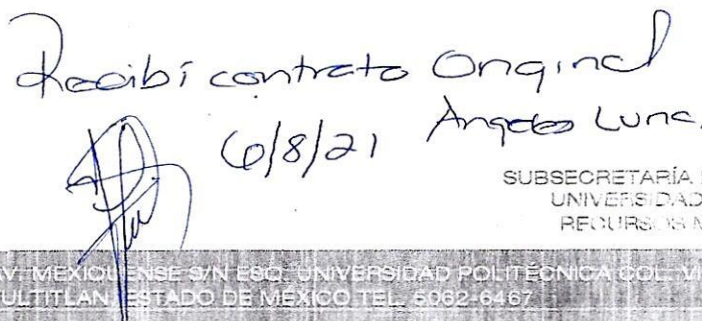 Recibí contrato Original
6/8/21 Angeles Luna.
SUBSECRETARÍA
UNIVERSIDAD
RECURSOS M
AV. MEXIQUENSE S/N ESQ. UNIVERSIDAD POLITÉCNICA COL. VI
ULTITLAN ESTADO DE MÉXICO TEL. 5062-6467